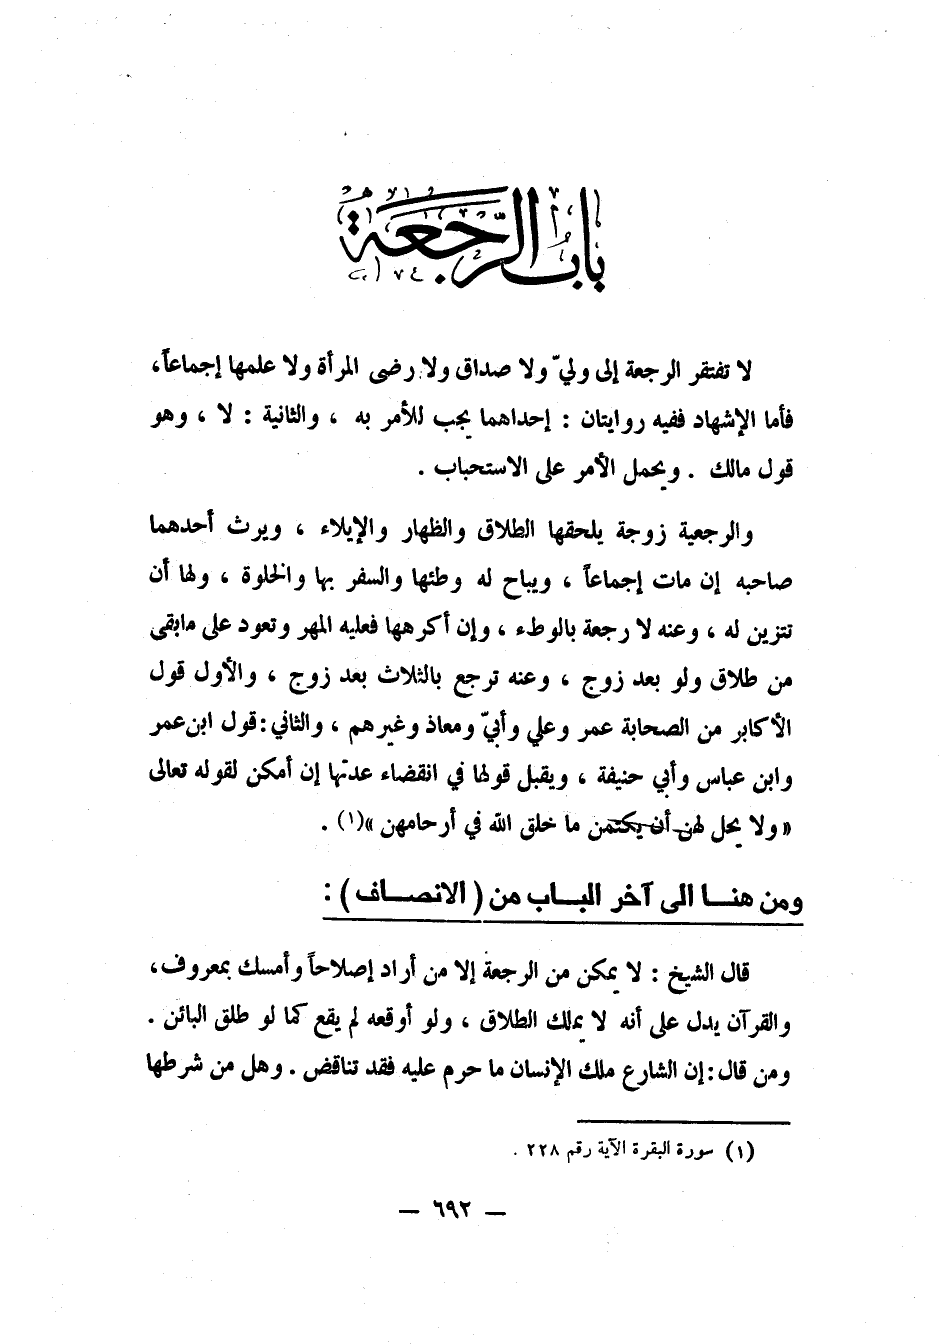 باب الرجعة
لا تفتقر الرجعة إلى وليّ ولا صداق ولا رضى المرأة ولا علمها إجماعاً،
فأما الإشهاد ففيه روايتان : إحداهما يجب للأمر به ، والثانية : لا ، وهو
قول مالك . ويحمل الأمر على الاستحباب .
والرجعية زوجة يلحقها الطلاق والظهار والإيلاء ، ويرث أحدهما
صاحبه إن مات إجماعاً ، ويباح له وطئها والسفر بها والخلوة ، ولها أن
تتزين له ، وعنه لا رجعة بالوطء ، وإن أكرهها فعليه المهر وتعود على مابقى
من طلاق ولو بعد زوج ، وعنه ترجع بالثلاث بعد زوج ، والأول قول
الأكابر من الصحابة عمر وعلي وأبيّ ومعاذ وغيرهم ، والثاني : قول ابن عمر
وابن عباس وأبي حنيفة ، ويقبل قولها في انقضاء عدتها إن أمكن لقوله تعالى
« ولا يحل لهن أن يكتمن ما خلق الله في أرحامهن »(١) .
ومن هنـــا الى آخر البـــاب من ( الانصـــاف ) :
قال الشيخ : لا يمكن من الرجعة إلا من أراد إصلاحاً وأمسك بمعروف،
والقرآن يدل على أنه لا يملك الطلاق ، ولو أوقعه لم يقع كما لو طلق البائن .
ومن قال : إن الشارع ملك الإنسان ما حرم عليه فقد تناقض . وهل من شرطها
(١) سورة البقرة الآية رقم ٢٢٨ .
— ٦٩٢ —